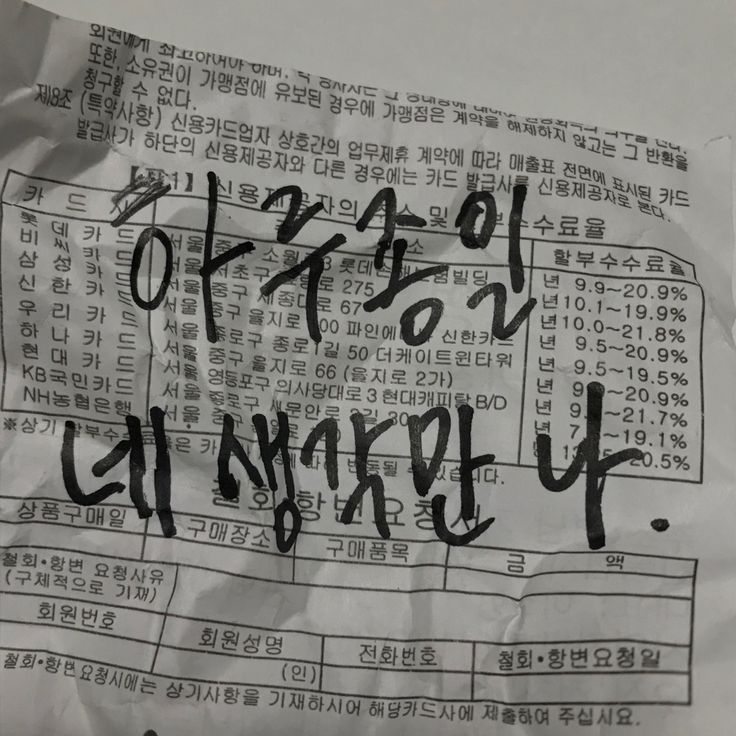 회원에게 최고하여야 하며,
또한, 소유권이 가맹점에 유보된 경우에 가맹점은 계약을 해제하지 않고는 그 반환을
청구할 수 없다.
제8조 (특약사항) 신용카드업자 상호간의 업무제휴 계약에 따라 매출표 전면에 표시된 카드
발급사가 하단의 신용제공자와 다른 경우에는 카드 발급사를 신용제공자로 본다.
1】 신용제공자의 주소 및 할부수수료율
카드사 주소 할부수수료율
롯데카드 서울 중구 소월로3 롯데손해보험빌딩 년 9.9~20.9%
비씨카드 서울 서초구 275 년10.1~19.9%
삼성카드 서울 중구 세종대로 67 년10.0~21.8%
신한카드 서울 중구 을지로 100 파인에비뉴 신한카드 년 9.5~20.9%
우리카드 서울 종로구 종로1길 50 더케이트윈타워 년 9.5~19.5%
하나카드 서울 중구 을지로 66 (을지로 2가) 년 ~20.9%
현대카드 서울 영등포구 의사당대로 3 현대캐피탈 B/D 년 ~21.7%
KB국민카드 서울 종로구 새문안로 3길 30 년 ~19.1%
NH농협은행 서울 중구 ~20.5%
※상기 할부수수료율은 카드사에 따라 변동될 수 있습니다.
하루종일
네 생각만 나.
철회·항변요청서
상품구매일 구매장소 구매품목 금 액
철회·항변 요청사유
(구체적으로 기재)
회원번호 회원성명 전화번호 철회·항변요청일
(인)
철회·항변요청시에는 상기사항을 기재하시어 해당카드사에 제출하여 주십시요.